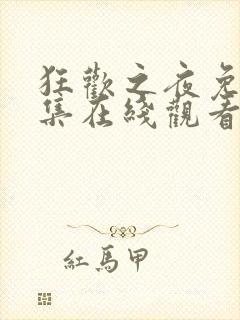 狂歡之夜免
集在綫觀看
紅馬甲